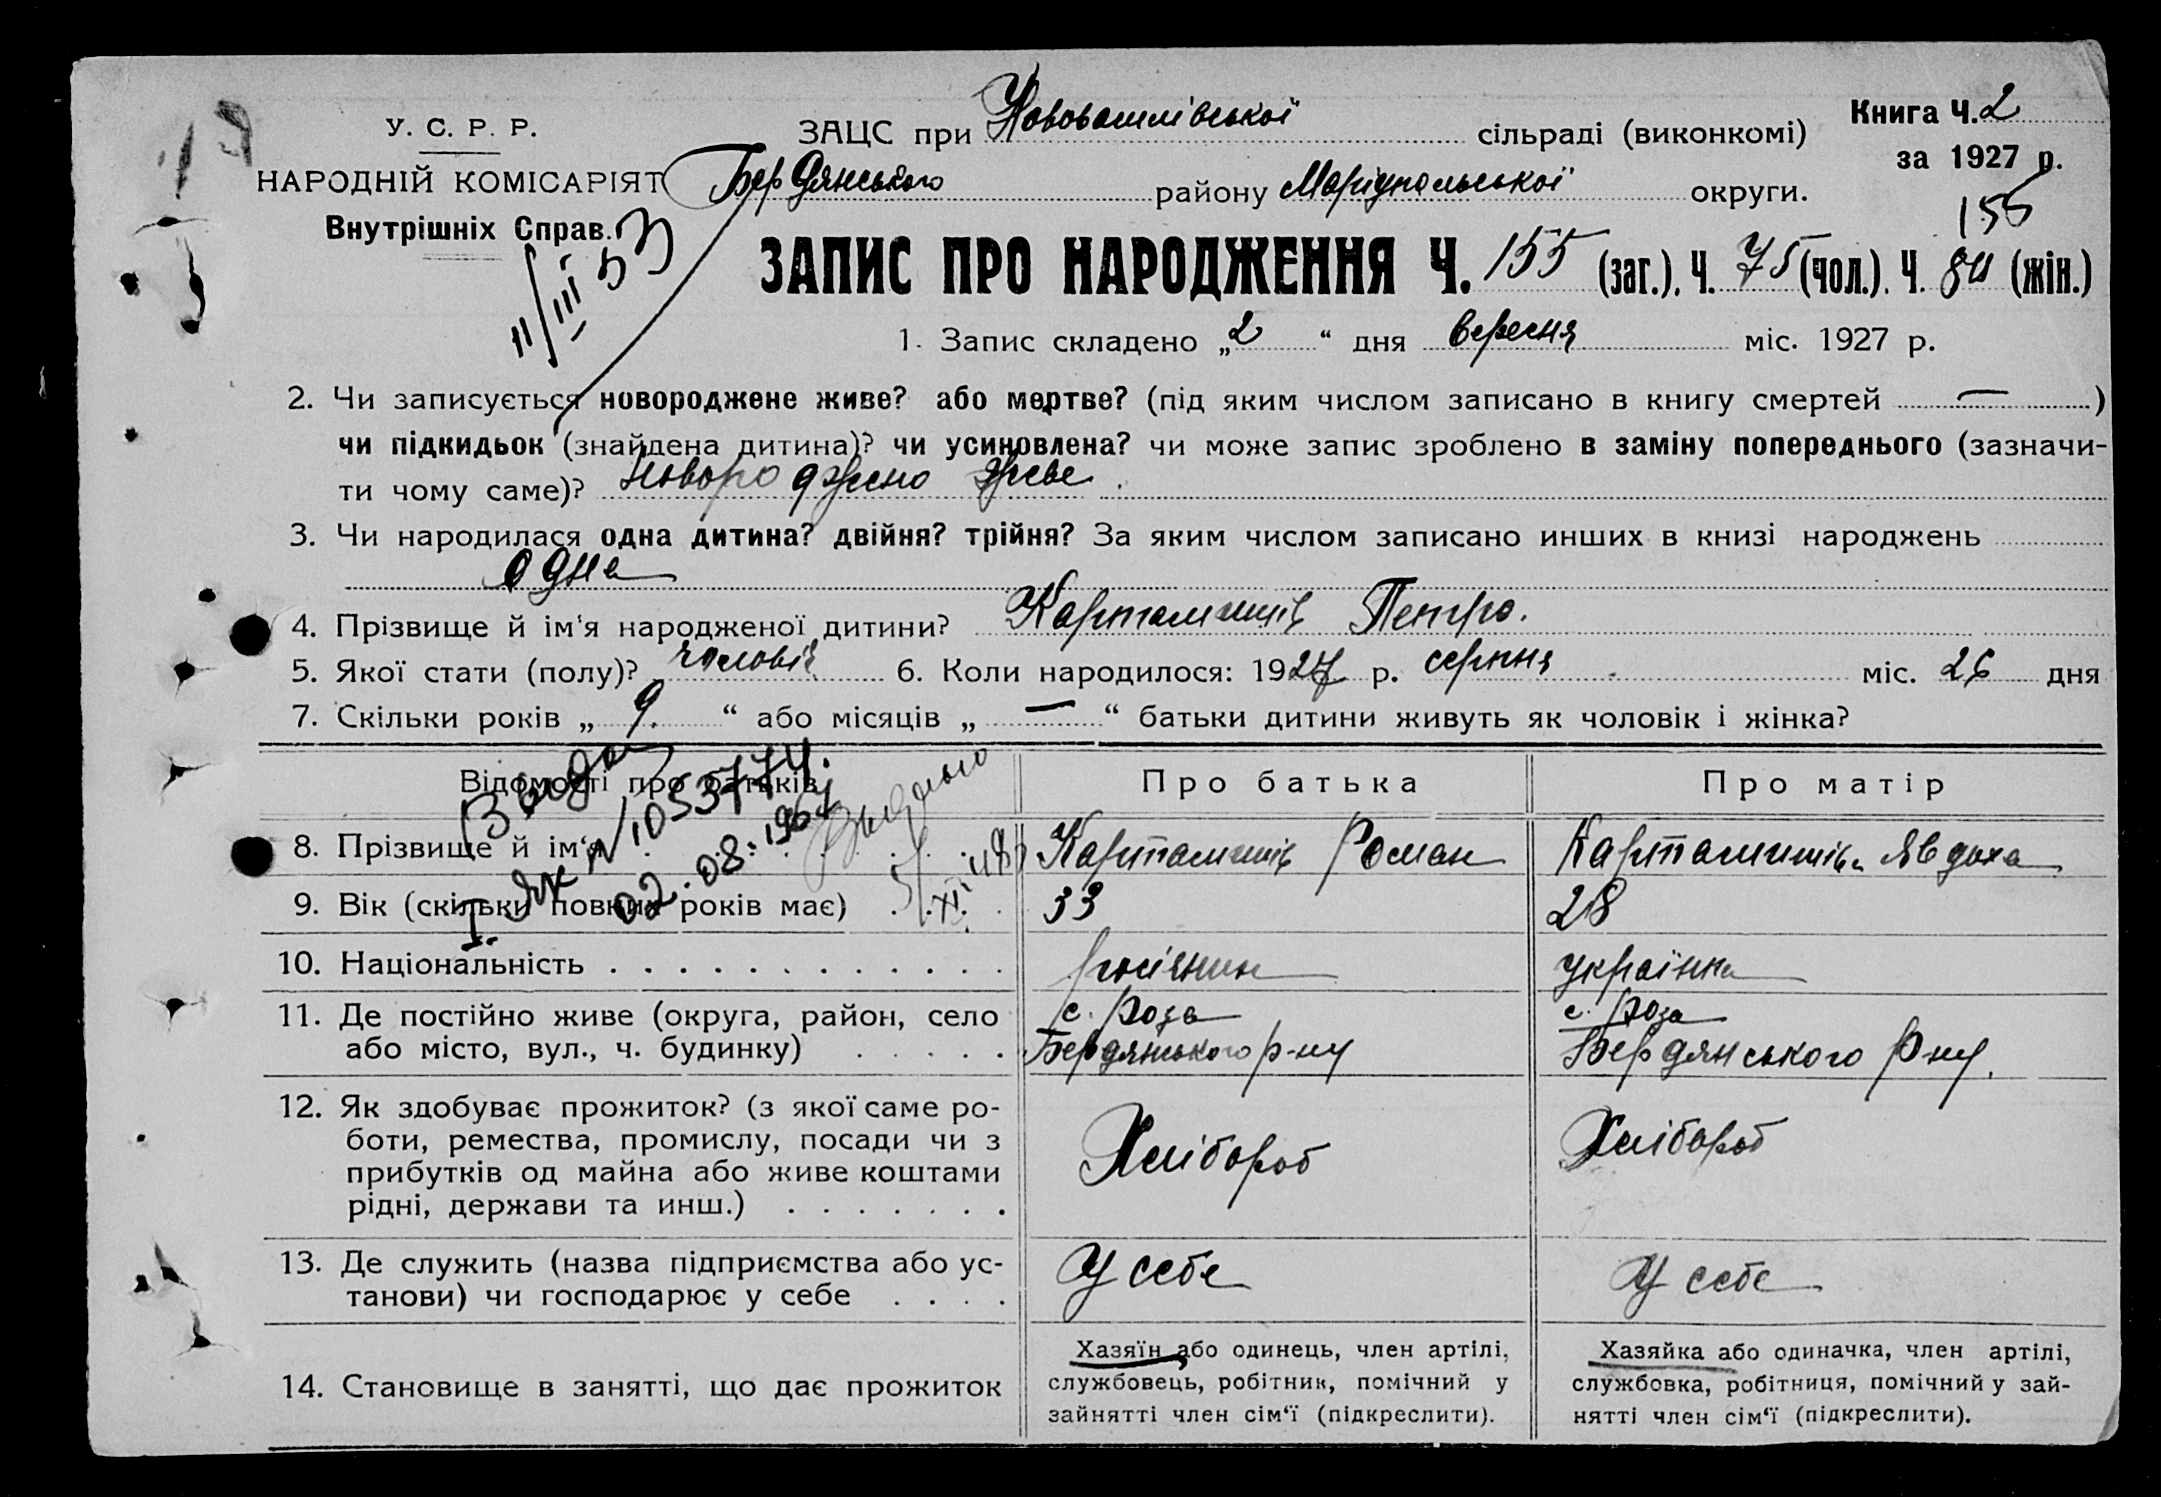 У. С. Р. Р.
НАРОДНІЙ КОМІСАРІЯТ
Внутрішніх Справ.
ЗАЦС при сільраді (виконкомі)
Бердянського району Маріупольської округи.
Книга Ч. 2
за 1927 р.
155
11/III 53
ЗАПИС ПРО НАРОДЖЕННЯ Ч. 155 (заг.). Ч. 75 (чол.). Ч. 80 (жін.)
1. Запис складено „2“ дня вересня міс. 1927 р.
2. Чи записується новороджене живе? або мертве? (під яким числом записано в книгу смертей — )
чи підкидьок (знайдена дитина)? чи усиновлена? чи може запис зроблено в заміну попереднього (зазначи-
ти чому саме)? Новороджено живе
3. Чи народилася одна дитина? двійня? трійня? За яким числом записано инших в книзі народжень
одна
4. Прізвище й ім'я народженої дитини? Картамишів Петро.
5. Якої стати (полу)? чоловіч 6. Коли народилося: 1927 р. серпня міс. 26 дня
7. Скільки років „9.“ або місяців „—“ батьки дитини живуть як чоловік і жінка?
Відомості про батьків Про батька Про матір
Выдан
I ЯК № 1053774.
02.08.1967
Выдано
5/XI 48
8. Прізвище й ім'я Картамишів Роман Картамишіва Явдоха
9. Вік (скільки повних років має) 33 28
10. Національність росіянин українка
11. Де постійно живе (округа, район, село с. Роза с. Роза
або місто, вул., ч. будинку) Бердянського р-ну Бердянського р-ну.
12. Як здобуває прожиток? (з якої саме ро-
боти, ремества, промислу, посади чи з Хлібороб Хлібороб
прибутків од майна або живе коштами
рідні, держави та инш.)
13. Де служить (назва підприємства або ус- У себе У себе
танови) чи господарює у себе
14. Становище в занятті, що дає прожиток
Хазяїн або одинець, член артілі,
службовець, робітник, помічний у
зайнятті член сім'ї (підкреслити).
Хазяйка або одиначка, член артілі,
службовка, робітниця, помічний у зай-
нятті член сім'ї (підкреслити).